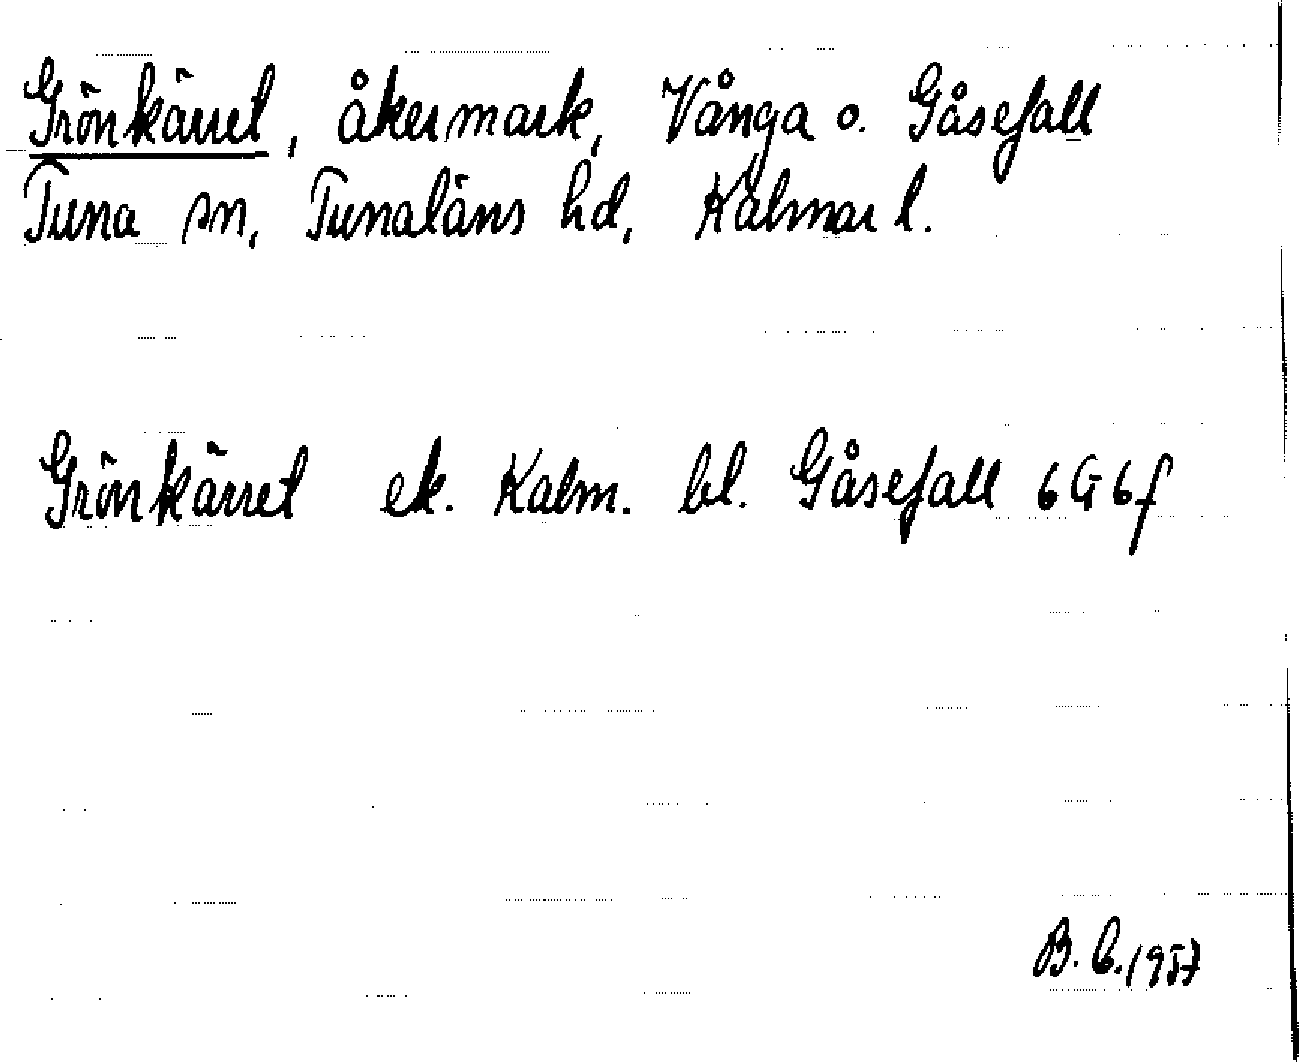 Grönkärret, åkermark, Vånga o. Gåsefall
Tuna sn, Tunaläns hd, Kalmar l.
Grönkärret ek. Kalm. bl. Gåsefall 6G6f
B. C. 1957